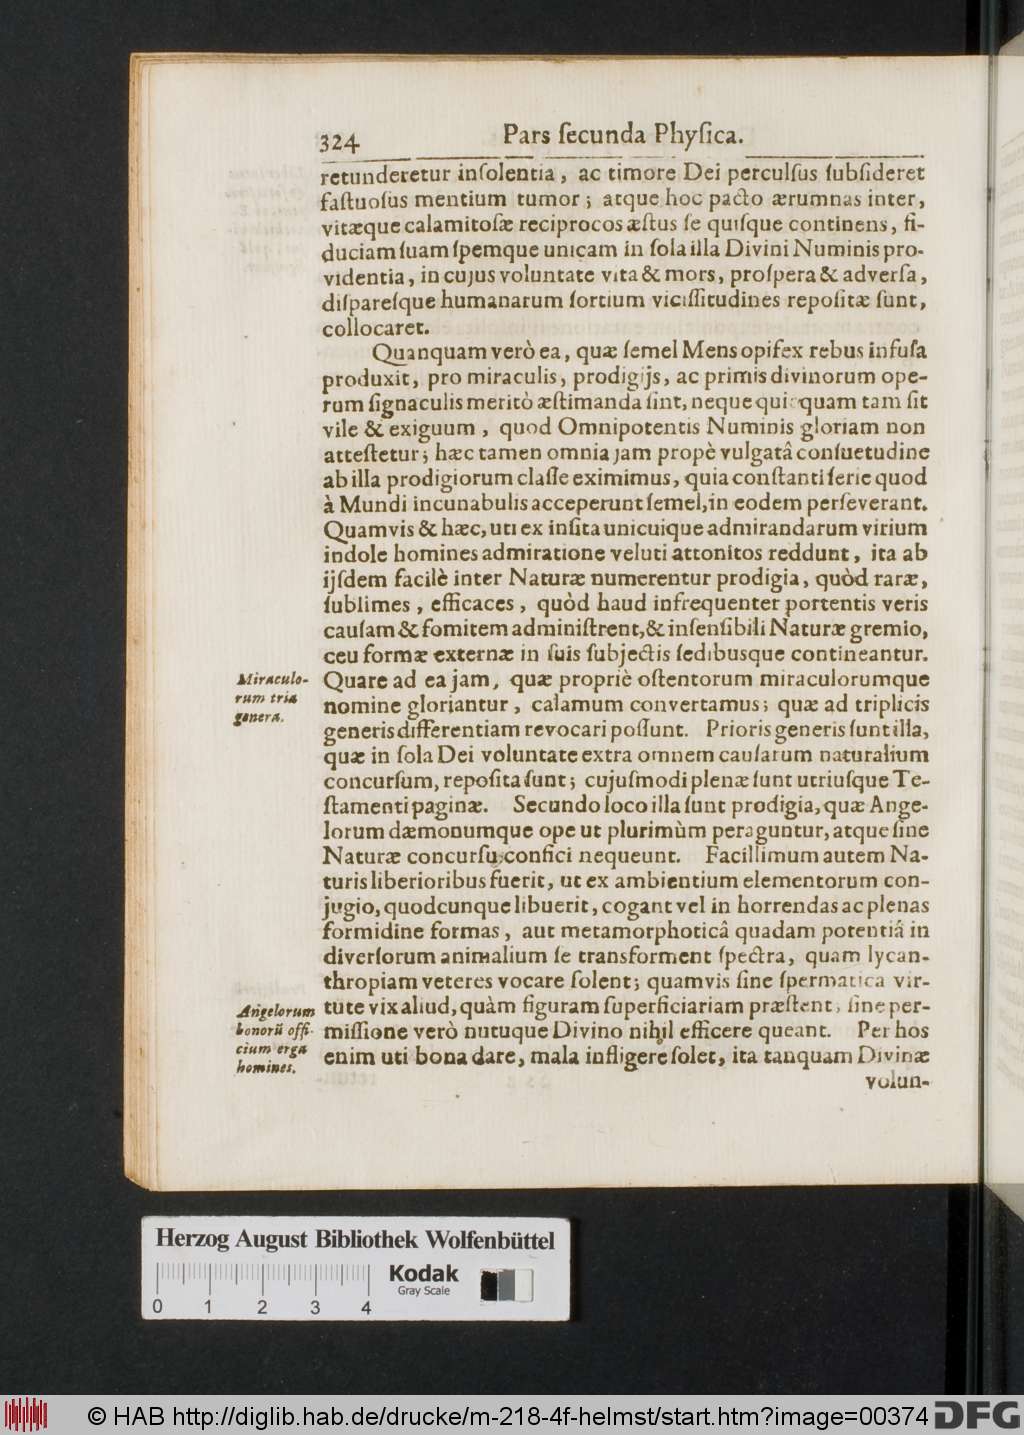 324
Pars ſecunda Phyſica.
retunderetur inſolentia, ac timore Dei perculſus ſubſideret
faſtuoſus mentium tumor; atque hoc pacto ærumnas inter,
vitæque calamitoſæ reciprocos æſtus ſe quiſque continens, fi-
duciam ſuam ſpemque unicam in ſola illa Divini Numinis pro-
videntia, in cujus voluntate vita & mors, proſpera & adverſa,
diſpareſque humanarum ſortium viciſſitudines repoſitæ ſunt,
collocaret.
Quanquam verò ea, quæ ſemel Mens opifex rebus infuſa
produxit, pro miraculis, prodigijs, ac primis divinorum ope-
rum ſignaculis meritò æſtimanda ſint, neque quicquam tam ſit
vile & exiguum, quod Omnipotentis Numinis gloriam non
atteſtetur; hæc tamen omnia jam propè vulgatâ conſuetudine
ab illa prodigiorum claſſe eximimus, quia conſtanti ſerie quod
à Mundi incunabulis acceperunt ſemel, in eodem perſeverant.
Quamvis & hæc, uti ex inſita unicuique admirandarum virium
indole homines admiratione veluti attonitos reddunt, ita ab
ijſdem facilè inter Naturæ numerentur prodigia, quòd raræ,
ſublimes, efficaces, quòd haud infrequenter portentis veris
cauſam & fomitem adminiſtrent, & inſenſibili Naturæ gremio,
ceu formæ externæ in ſuis ſubjectis ſedibusque contineantur.
Miraculo-
rum tria
genera.
Quare ad ea jam, quæ propriè oſtentorum miraculorumque
nomine gloriantur, calamum convertamus; quæ ad triplicis
generis differentiam revocari poſſunt. Prioris generis ſunt illa,
quæ in ſola Dei voluntate extra omnem cauſarum naturalium
concurſum, repoſita ſunt; cujuſmodi plenæ ſunt utriuſque Te-
ſtamenti paginæ. Secundo loco illa ſunt prodigia, quæ Ange-
lorum dæmonumque ope ut plurimùm peraguntur, atque ſine
Naturæ concurſu confici nequeunt. Facillimum autem Na-
turis liberioribus fuerit, ut ex ambientium elementorum con-
jugio, quodcunque libuerit, cogant vel in horrendas ac plenas
formidine formas, aut metamorphoticâ quadam potentiâ in
diverſorum animalium ſe transforment ſpectra, quam lycan-
thropiam veteres vocare ſolent; quamvis ſine ſpermatica vir-
Angelorum
bonorũ offi-
cium erga
homines.
tute vix aliud, quàm figuram ſuperficiariam præſtent, ſine per-
miſſione verò nutuque Divino nihil efficere queant. Per hos
enim uti bona dare, mala infligere ſolet, ita tanquam Divinæ
volun-
Herzog August Bibliothek Wolfenbüttel
Kodak
Gray Scale
0 1 2 3 4
© HAB http://diglib.hab.de/drucke/m-218-4f-helmst/start.htm?image=00374
DFG